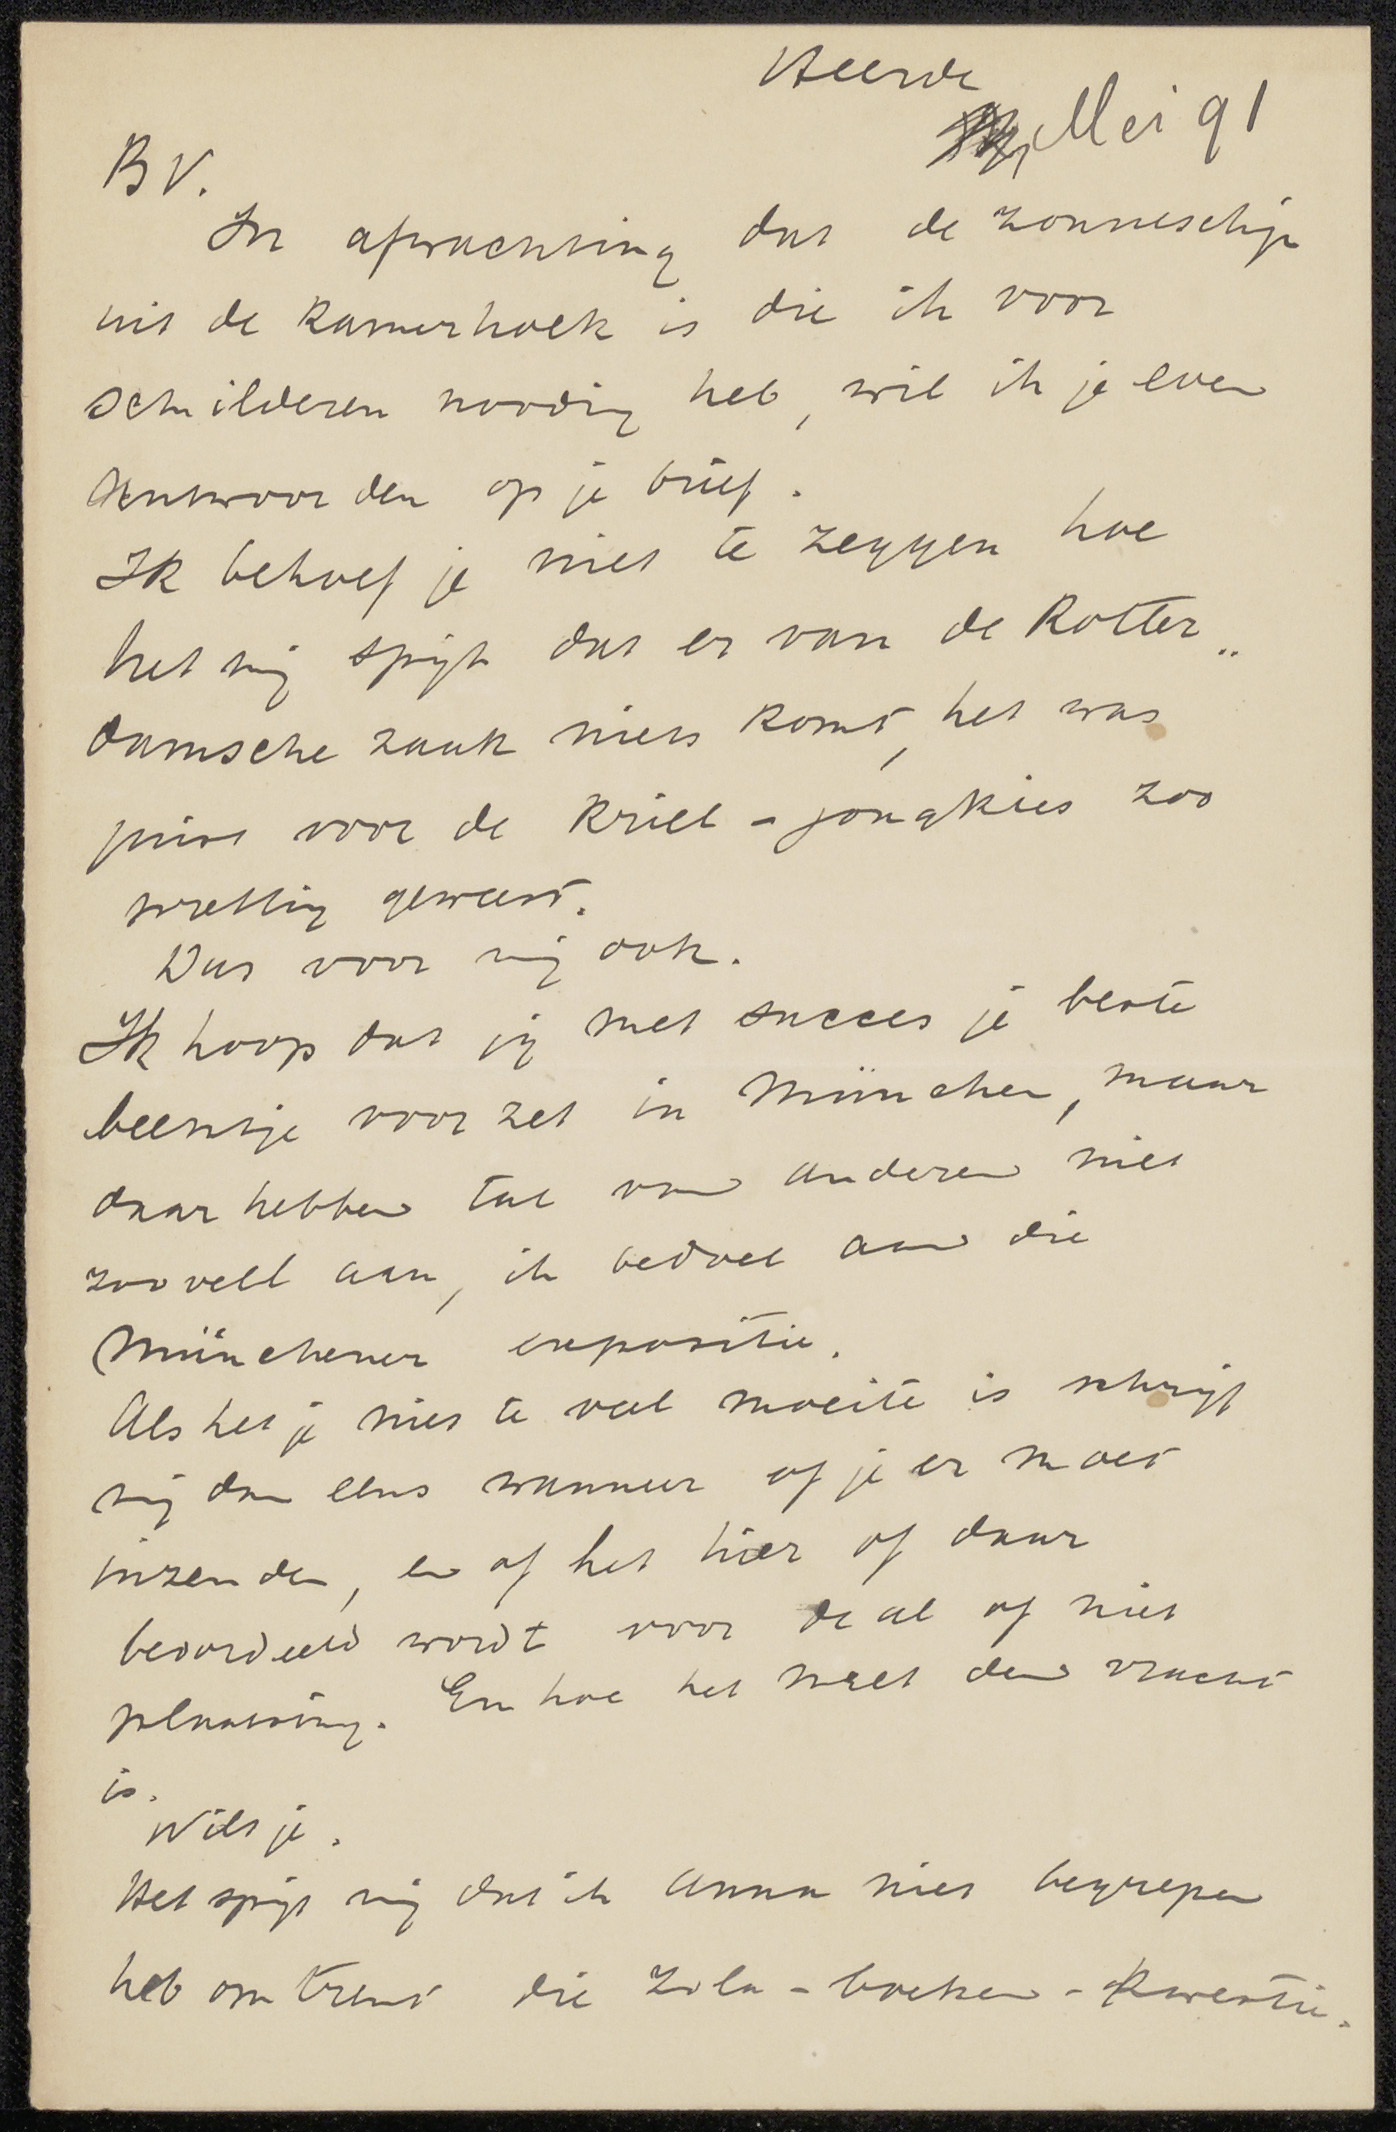 Heerde
Mei 91
BV.
In afwachting dat de zonneschijn
uit de kamerhoek is die ik voor
schilderen noodig heb, wil ik je even
antwoorden op je brief.
Ik behoef je niet te zeggen hoe
het mij spijt dat er van de Rotter„
damsche zaak niets komt, het was
juist voor de Kriel-jongkies zoo
prettig geweest.
Dus voor mij ook.
Ik hoop dat jij met succes je beste
beentje voorzet in München, maar
daar hebben tal van anderen niet
zooveel aan, ik bedoel aan die
Münchener expositie.
Als het je niet te veel moeite is schrijf
mij dan eens wanneer of je er moet
inzenden, en of het hier of daar
beoordeeld wordt voor de al of niet
plaatsing. En hoe het met den vracht
is.
Wilt je.
Het spijt mij dat ik Anna niet begrepen
heb omtrent die Zola-boeken-kwestie.